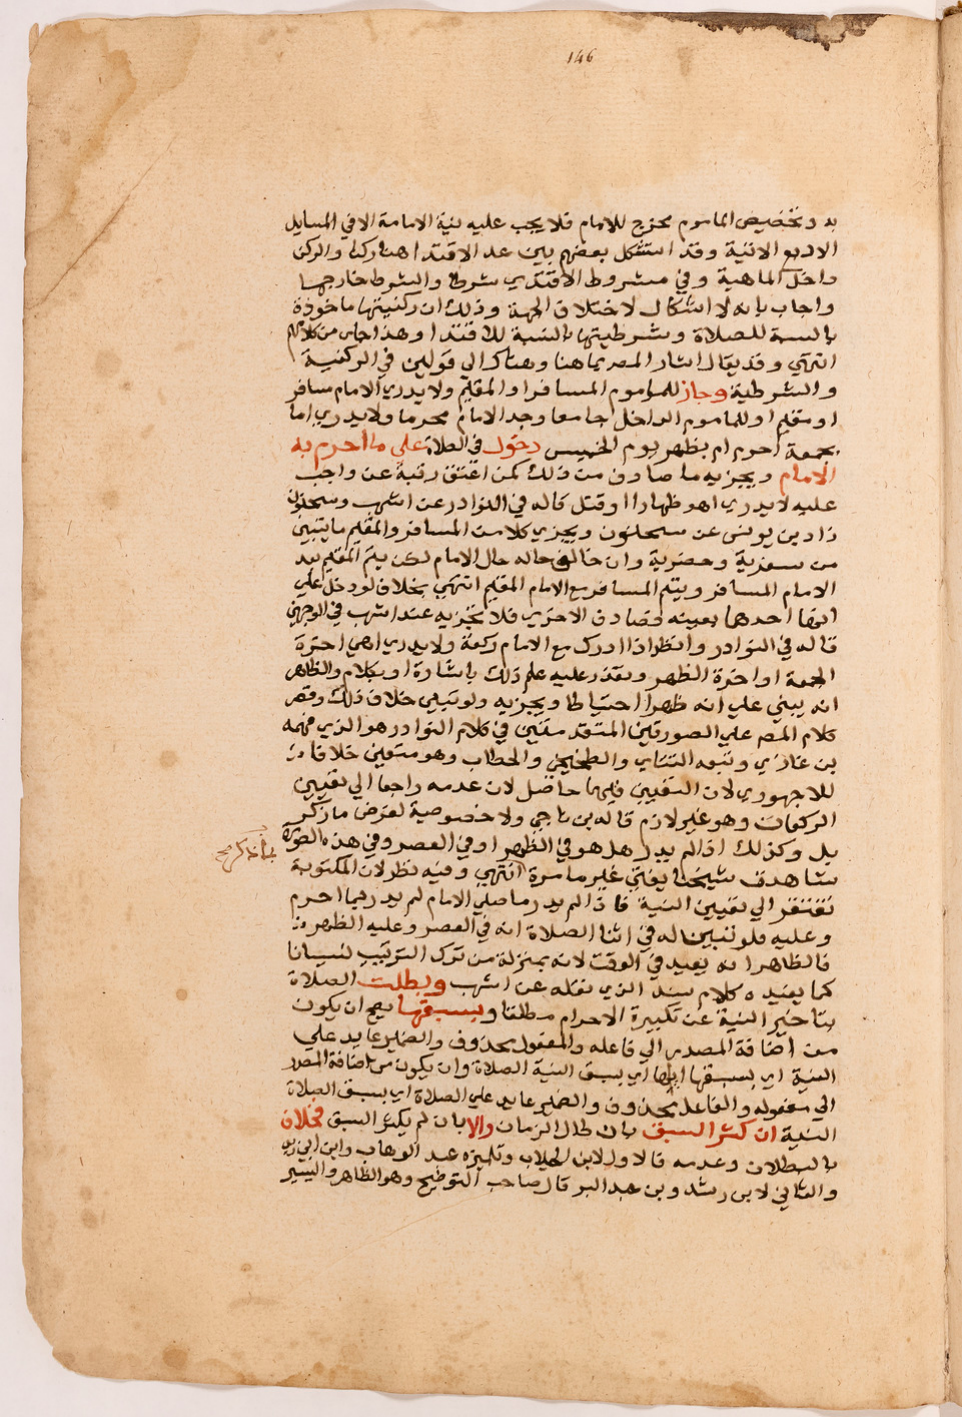 146
به وتخصيص الماموم مخرج للامام فلا يجب عليه نية الامامة الا في المسايل
الاربع الاتية وقد استشكل بعضهم بين عد الاقتدا هنا ركنا والركن
داخل الماهية وفي مشروط الاقتدي شرطا والشرط خارجها
واجاب بانه لا اشكال لاختلاف الجهة وذلك ان ركنيتها ماخوذة
بالنسبة للصلاة وشرطيتها بالنسبة للاقتدا وهذا جاي من كلامهم
انتهي وقد يقال اشار المصر بما هنا وهناك الي قولين في الركنية
والشرطية وجاز للماموم المسافر او المقيم ولا يدري الامام مسافر
او مقيم او للماموم الداخل جامعا وجد الامام محرما ولا يدري اما
بجمعة احرم ام بظهر يوم الخميس دخول في الصلاة علي ما احرم به
الامام ويجزيه ما صادف من ذلك كمن اعتق رقبة عن واجب
عليه لا يدري اهو ظهارا او قتل قاله في النوادر عن اشهب وسحنون
زاد بن يونس عن سحنون ويجزي كلا من المسافر والمقيم ما يتبين
من سفرية وحضرية وان خالف حاله حال الامام لكن يتم المقيم بعد
الامام المسافر ويتم المسافر مع الامام المقيم انتهي بخلاف لو دخل علي
انها احدهما بعينه فصادف الاخري فلا تجزيه عند اشهب في الوجهين
قاله في النوادر وانظر اذا ادرك مع الامام ركعة ولا يدري اهي اخرة
الجمعة او اخرة الظهر وتعذر عليه علم ذلك باشارة او بكلام والظاهر
انه يبني علي انه ظهرا احتياطا ويجزيه ولو تبين خلاف ذلك وقصر
كلام المص علي الصورتين المتقدمتين في كلام النوادر هو الذي فهمه
بن غازي وتبعه التتاي والطخيخي والحطاب وهو متعين خلافا
للاجهوري لان التعيين فيهما حاصل لان عدمه راجعا الي تعيين
الركعات وهو غير لازم قاله بن ناجي ولا خصوصية لفرض ما ذكر
بل وكذلك اذا لم يدر هل هو في الظهر او في العصر وفي هذه الصورة
شاهدت شيخنا يفتي غير ما مرة انتهي وفيه نظر لان المكتوبة
تفتقر الي تعيين النية فاذا لم يدر ما صلي الامام لم يدر بما احرم
وعليه فلو تبين له في اثنا الصلاة انه في العصر وعليه الظهر
فالظاهر انه يعيد في الوقت لانه بمنزلة من ترك الترتيب لنسيانا
كما يفيده كلام سند الذي نقله عن اشهب وبطلت الصلاة
بتاخير النية عن تكبيرة الاحرام مطلقا وبسبقها يصح ان يكون
من اضافة المصدر الي فاعله والمفعول محذوف والضمير عايد علي
النية اي بسبقها اياها اي بسبق النية الصلاة وان يكون من اضافة المصدر
الي مفعوله والفاعل محذوف والضمير عايد علي الصلاة اي بسبق الصلاة
النية ان كثر السبق بان طال الزمان والا بان لم يكثر السبق فخلاف
بالبطلان وعدمه فالاول لابن الجلاب وتلميذه عبد الوهاب وابن ابي زيد
والثاني لابن رشد وبن عبد البر قال صاحب التوضيح وهو الظاهر واليسير